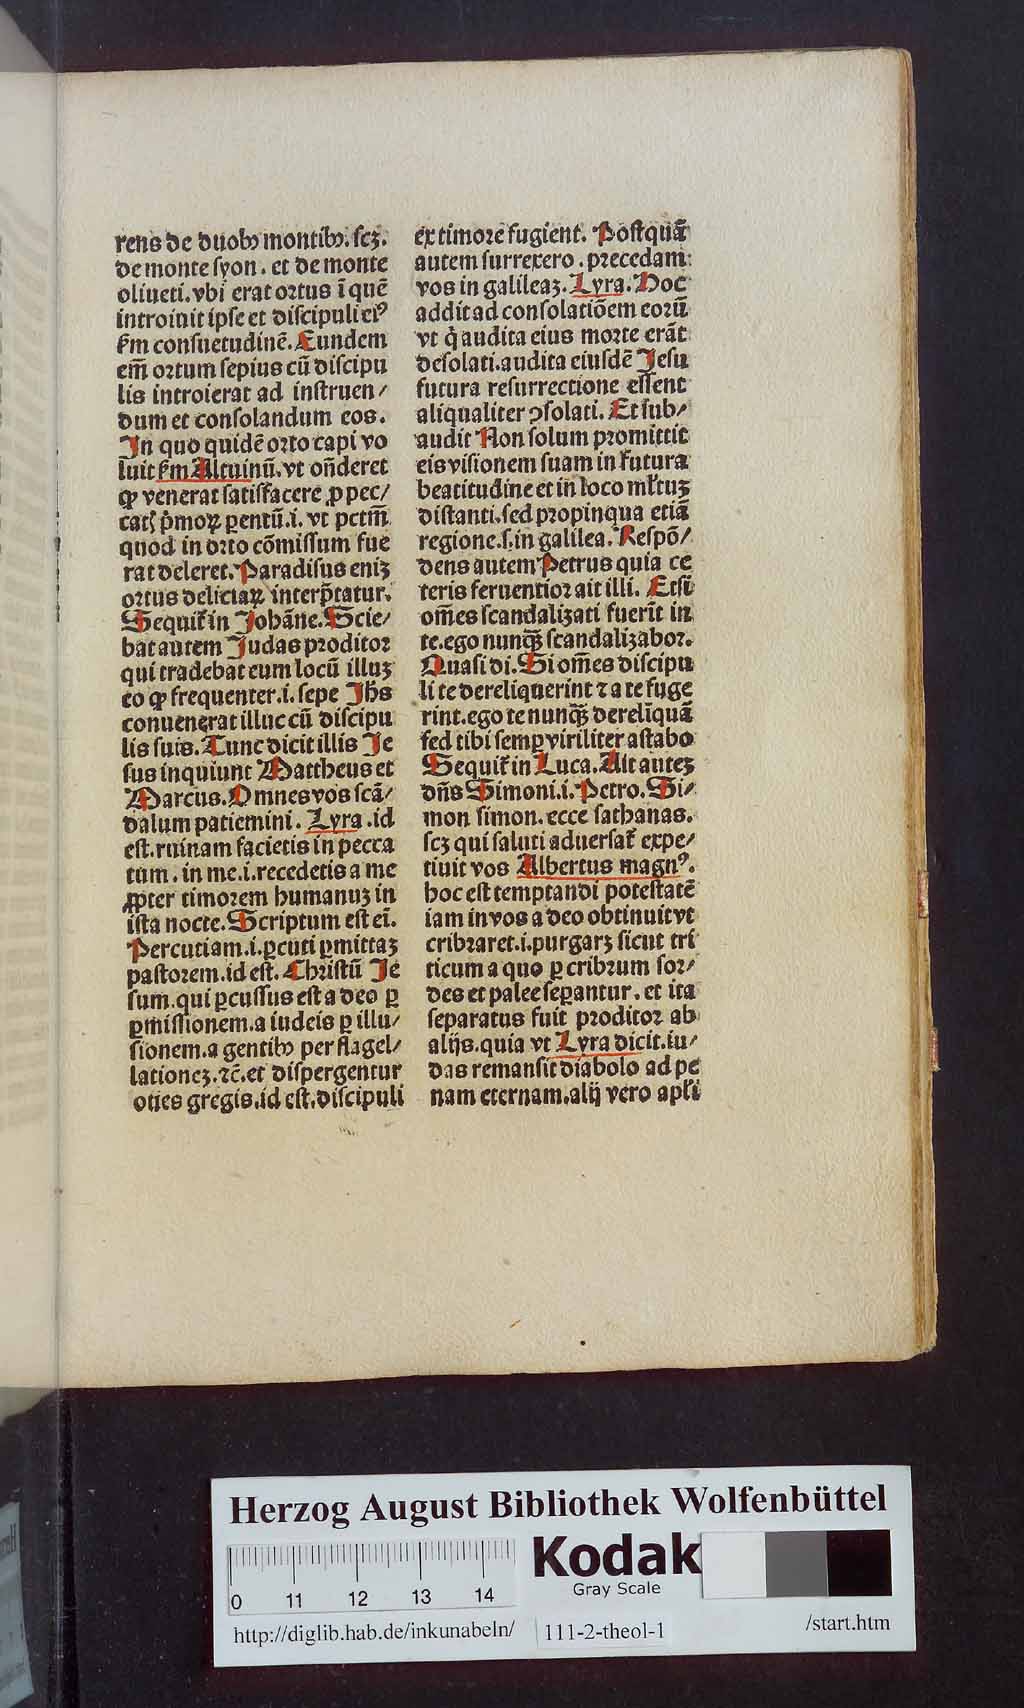 rens de duobꝰ montibꝰ. scꝫ.
de monte syon. et de monte
oliueti. vbi erat ortus ī quē
introiuit ipse et discipuli eiꝰ
ẜm consuetudinē. Eundem
em̄ ortum sepius cū discipu
lis introierat ad instruen/
dum et consolandum eos.
In quo quidē orto capi vo
luit ẜm Alcuinū. vt on̄deret
ꝙ venerat satisfacere ꝓ pec/
catꝭ p̄moꝝ parentū .i. vt pctm̄
quod in orto cōmissum fue
rat deleret. Paradisus eniꝫ
ortus deliciaꝝ interp̄tatur.
Sequit̄ in Johāne. Scie/
bat autem Judas proditor
qui tradebat eum locū illuꝫ
eo ꝙ frequenter .i. sepe Jhs̄
conuenerat illuc cū discipu
lis suis. Tunc dicit illis Je
sus inquiunt Mattheus et
Marcus. Omnes vos scā/
dalum patiemini. Lyra .id
est. ruinam facietis in pecca
tum. in me .i. recedetis a me
ꝓpter timorem humanuꝫ in
ista nocte. Scriptum est ei̅.
Percutiam .i. ꝑcuti ꝑmittaꝫ
pastorem. id est. Christū Je
sum. qui ꝑcussus est a deo ꝑ
ꝑmissionem. a iudeis ꝑ illu/
sionem. a gentibꝰ per flagel/
lationeꝫ. ⁊c̄. et dispergentur
oues gregis. id est. discipuli
ex timore fugient. Postquā
autem surrexero. precedam
vos in galileaꝫ. Lyra. Hoc
addit ad consolatiōem eorū
vt q̇ audita eius morte erāt
desolati. audita eiusdē Jesu
futura resurrectione essent
aliqualiter ꝯsolati. Et sub/
audit Non solum promittit
eis visionem suam in futura
beatitudine et in loco ml̄tuꝫ
distanti. sed propinqua etiā
regione .s. in galilea. Respō/
dens autem Petrus quia ce
teris feruentior ait illi. Etsi
om̄es scandalizati fuerīt in
te. ego nunqꝫ scandalizabor.
Quasi di. Si om̄es discipu
li te dereliquerint ⁊ a te fuge
rint. ego te nunqꝫ derelīquā
sed tibi semꝑ viriliter astabo
Sequit̄ in Luca. Ait auteꝫ
dn̄s Simoni .i. Petro. Si/
mon simon. ecce sathanas.
scꝫ qui saluti aduersat̄ expe/
tiuit vos Albertus magnꝰ.
hoc est temptandi potestatē
iam in vos a deo obtinuit vt
cribraret .i. purgarꝫ sicut tri
ticum a quo ꝑ cribrum sor/
des et palee seꝑantur. et ita
separatus fuit proditor ab
alijs. quia vt Lyra dicit. iu/
das remansit diabolo ad pe
nam eternam. alij vero apl̄i
Herzog August Bibliothek Wolfenbüttel
Kodak
Gray Scale
0 11 12 13 14
http://diglib.hab.de/inkunabeln/ 111-2-theol-1 /start.htm